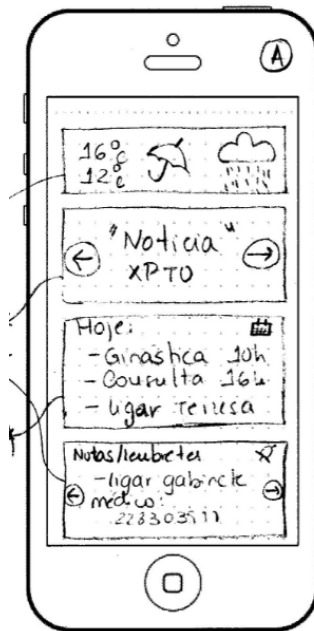 A
16°c
12°c
"Noticia"
XPTO
Hoje:
- Ginastica 10h
- Consulta 16h
- ligar Teresa
Notas/lembretes
- ligar gabinete
médico: